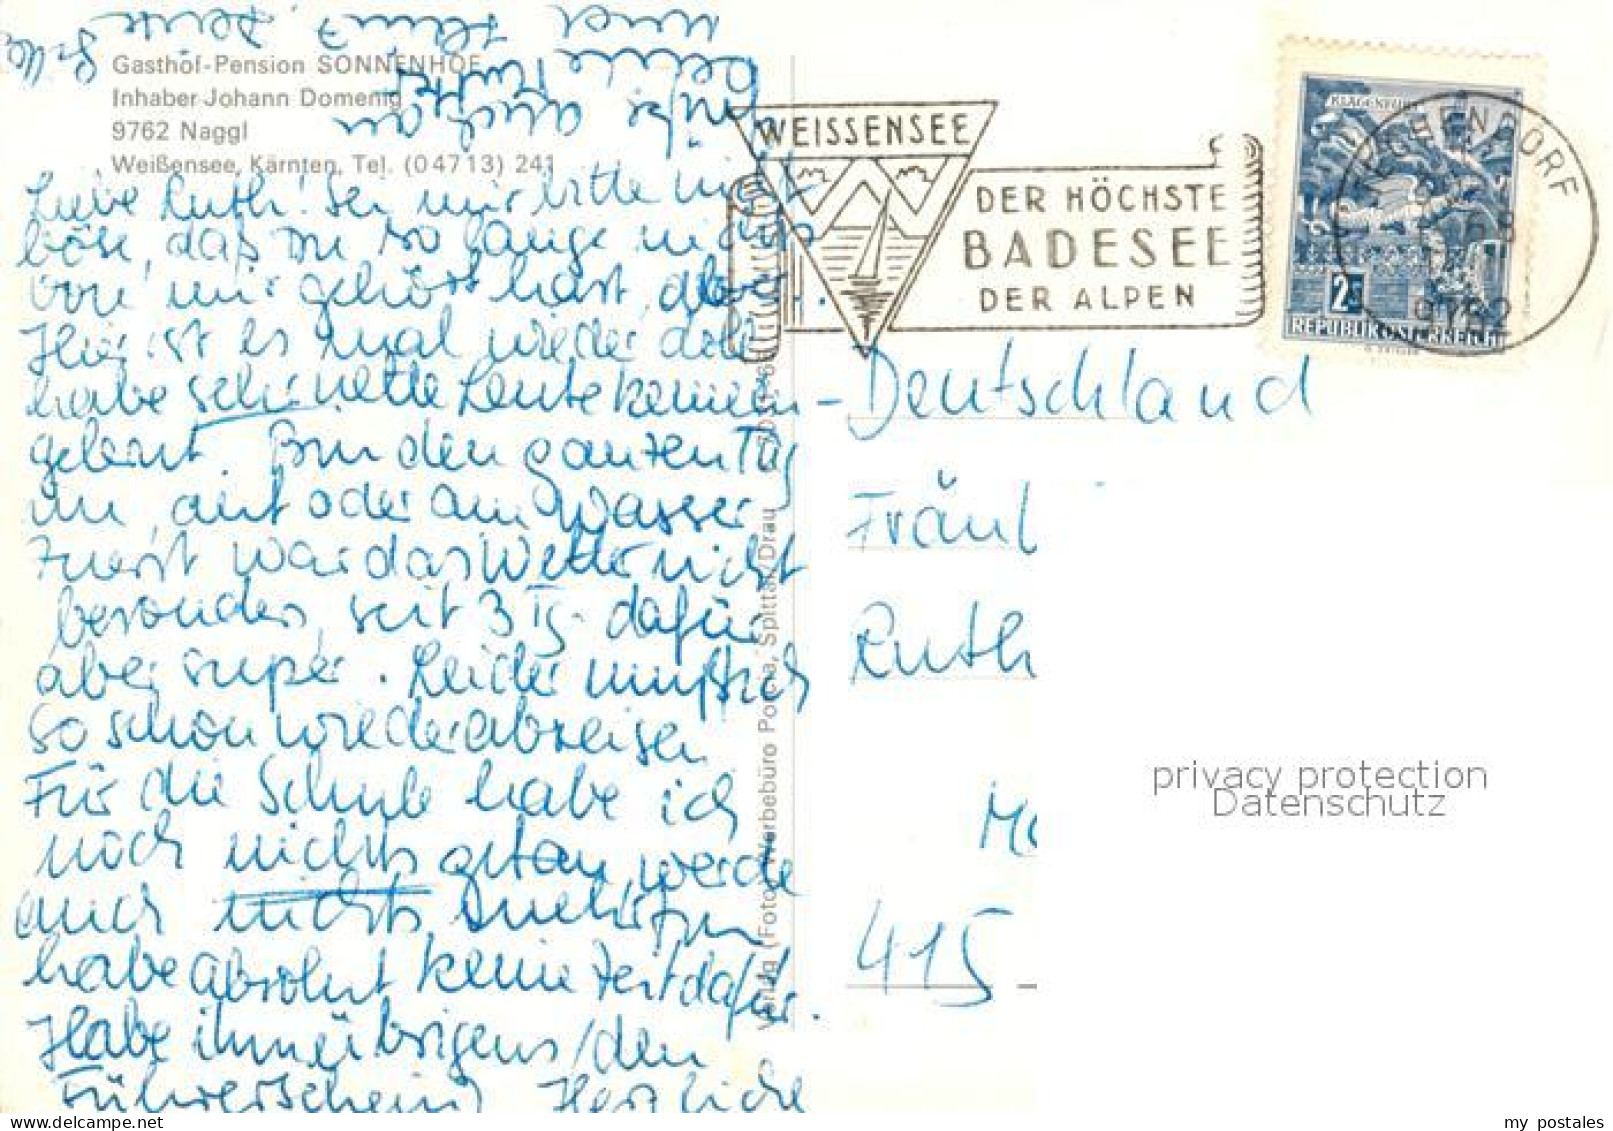 Gasthof-Pension SONNENHOF
Inhaber Johann Domenig
9762 Naggl
Weißensee, Kärnten, Tel. (04713) 241
Liebe Ruth! Sei mir bitte nicht
böse, daß Du so lange nichts
von mir gehört hast, aber.
Hier ist es mal wieder doll
habe sehr nette Leute kennen-
gelernt. Bin den ganzen Tag
im, auf oder am Wasser
Zuerst war das Wetter nicht
besonders, seit 3 Tg. dafür
aber super. Leider muß ich
So schon wieder abreisen
Für die Schule habe ich
noch nichts getan, werde
auch nichts mehr tun
habe absolut keine Zeit dafür.
Habe ihn übrigens, den
Führerschein! Herzliche
Grüße auch an
Deine Mutter
und Heinz Deine
WEISSENSEE
DER HÖCHSTE
BADESEE
DER ALPEN
KLAGENFURT
2S
REPUBLIK ÖSTERREICH
9762
Deutschland
Fräul
Ruth
415
Verlag (Foto), Werbebüro Spittal/Drau
privacy protection
Datenschutz
my postales